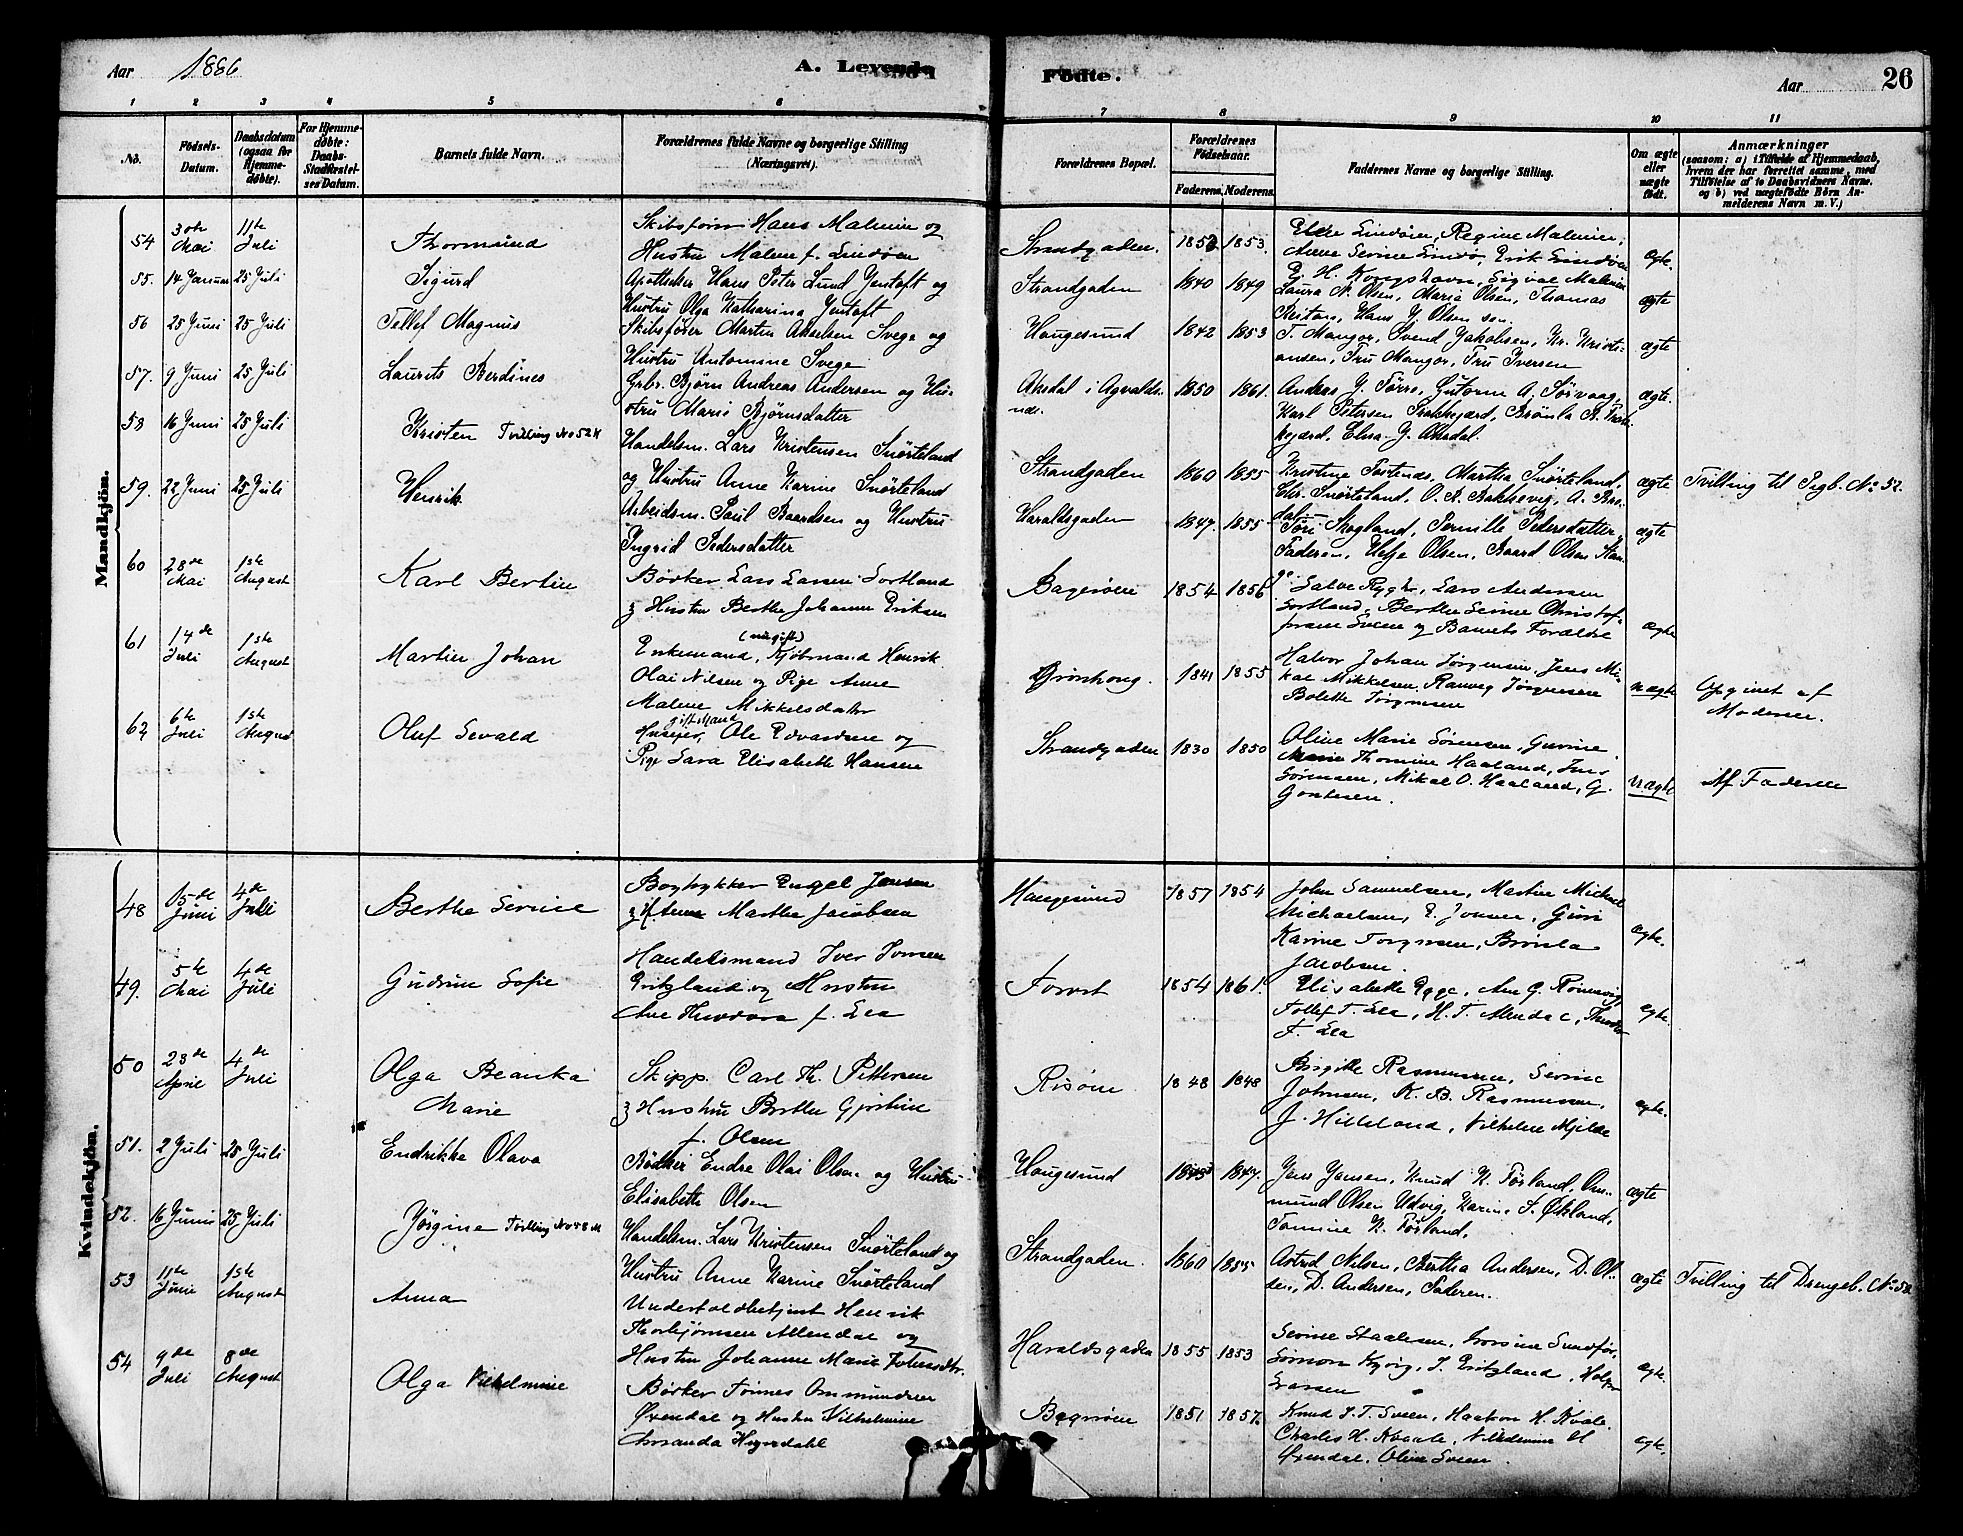 Aar 1886
A. Levende
Födte.
Aar
26
1 2 3 4 5 6 7 8 9 10 11
No.
Födsels-
Datum.
Daabsdatum
(ogsaa for
Hjemme-
döbte).
For Hjemme-
döbte:
Daabs-
Stadfæstel-
ses Datum.
Barnets fulde Navn.
Forældrenes fulde Navne og borgerlige Stilling
(Næringsvei).
Forældrenes Bopæl.
Forældrenes
Födselsaar.
Faderens. Moderens.
Faddernes Navne og borgerlige Stilling.
Om ægte
eller
uægte
födt.
Anmærkninger
(saasom: a) i Tilfælde af Hjemmedaab,
hvem der har forrettet samme, med
Tilföielse af to Daabsvidners Navne,
og b) ved uægtefödte Börn An-
melderens Navn m. V.)
Mandkjön.
54
30te
Mai
11te
Juli
Thormund
Skibsfører Hans Malmin og
Hustru Malene f. Lindøen
Strandgaden.
1852 1853.
Lindøen, Regine Malmin,
Anne Serine Lindø, Erik Lindøen
ægte.
55. 14 Januar 25 Juli
Sigurd
Apotheker Hans Peter Lund Jentoft og
Hustru Olga Katharina Jentoft
Strandgaden
1840 1849
H. Kongshavn, Sigval Malmin
Laura N. Olsen, Maria Olsen, Thomas
Reitan, Hans Y. Olsen sen.
ægte
56 25 Juni 25 Juli
Tellef Magnus
Skibsfører Martin Akselsen Svege og
Hustru Antomine Svege
Haugesund
1842 1853
T. Mangor, Svend Jakobsen, Kr. Kristi-
ansen, Fru Mangor, Fru Iversen
ægte
57. 9 Juni 25 Juli
Laurits Berdines
Grbr. Bjørn Andreas Andersen og Hu-
stru Maris Bjørnsdatter
Aksdal i Agvalds-
nes.
1850 1861.
Andras Y. Førre, Gutorm A. Sørvaag,
Karl Petersen Stakkegard, Brønla
kgærd, Elna Y. Aksdal.
ægte.
58 16 Juni 25 Juli
Kristen Tvilling No 52 K
Handelsm. Lars Kristensen Snørteland
og Hustru Anne Karine Snørteland
Strandgaden
1860 1855
Kristine Martha Snørteland,
Chr. Snørteland, O. R. Bakkevig, A.
ægte
Tvilling til Pigb. No 52.
59. 22 Juni 25 Juli
Henrik
Arbeidsm. Paul Baardsen og Hustru
Ingrid Pedersdatter
Haraldsgaden
1847. 1855
Skogland, Pernille Pedersdatter,
Faderen, Helje Olsen, Baard Olsen
ægte
60
28de
Mai
1ste
August
Karl Bertin
Bødker Lars Larsen Sortland
og Hustru Berthe Johanne Eriksen
Bagerøen
1854 1856
Salve Rygh, Lars Andersen
Sortland, Berthe Serine Christof-
fersen Sveen og Barnets Forældre
ægte
61
14de
Juli
1ste
August
Martin Johan
(nu gift)
Enkemand, Kjøbmand Henrik
Olai Nilsen og Pige Anne
Malene Mikkelsdatter
Grønhoug.
1841 1855
Halvor Johan Jørgensen, Jens Mi-
kal Mikkelsen, Ranveg Jørgensen
Bolette Jørgensen
uægte
Opgivet af
Moderen.
62
6te
Juli
1ste
August
Oluf Sevald
gift Mand
Huseier, Ole Edvardsen og
Pige Sara Elisabeth Hansen
Strandgaden
1830 1850
Oline Marie Sørensen, Gurine
Thomine Haaland, Jens
Sørensen, Mikal O. Haaland, G.
Gontesen.
uægte
Af Faderen
Kvindekjön.
48
15de
Juni
4de
Juli
Berthe Serine
Bogtrykker Engel Jonsen
og H. Anne Marthe Jacobsen
Haugesund
1857 1854
John Samuelsen, Martin Michael
Michaelsen, E. Jonsen, Guri
Karine Torgersen, Brønla
Jacobsen.
ægte.
49.
5te
Mai
4de
Juli
Gudrun Sofie
Handelsmand Iver Jonsen
Eritzland og Hustru
Ane Theodora f. Lea
Torvet
1854 1861.
Elisabeth Egge, Ane G. Rønnevig,
Tollef T. Lea, H. T. Alendal, Theodor
T. Lea
ægte.
50
23de
April
4de
Juli
Olga Beanka
Marie
Skipp. Carl Th. Pettersen
og Hustru Berthe Gjertine
f. Olsen
Risøen
1848 1848
Brigitte Rasmussen, Serine
Johnsen, K. B. Rasmussen,
J. Hilleland, Vilhelm Mjelde
ægte.
51. 2 Juli 25 Juli
Endrikke Olava
Bødker Endre Olai Olsen og Hustru
Elisabeth Olsen
Haugesund
1845 1847.
Jens Jansen, Knud K. Førland, Om-
mund Olsen Udvig, Karin S. Økland,
Tomine K. Førland.
ægte
52. 16 Juni 25 Juli
Jørgine Tvilling No 58 M
Handelsm. Lars Kristensen Snørteland og
Hustru Anne Karine Snørteland
Strandgaden
1860 1855
Astrid Nilsen, Bertha Andersen, D. Ol-
sen, D. Andersen, Faderen.
ægte
Tvilling til Drengeb. No 58
53
11te
Juni
1ste
August
Anna
Underfoldbetjent Henrik
Thorbjørnsen Allendal og
Hustru Johanne Marie Johnsdtr.
Haraldsgaden
1855 1853
Serine Staalesen, Sundfør,
Simon Kyvig, J. Eritzland, Holger
Larsen
ægte.
54
9de
Juli
8de
August
Olga Vilhelmine
Bødker Tønnes Ommundsen
Øxendal og Hustru Vilhelmine
Amanda Hegerdahl
Bagerøen
1851 1857
Knud J. T. Sveen, Haakon H. Kvale
Charles H. Kvaale, Vilhelmine H
Øxendal, Oline Sveen.
ægte.